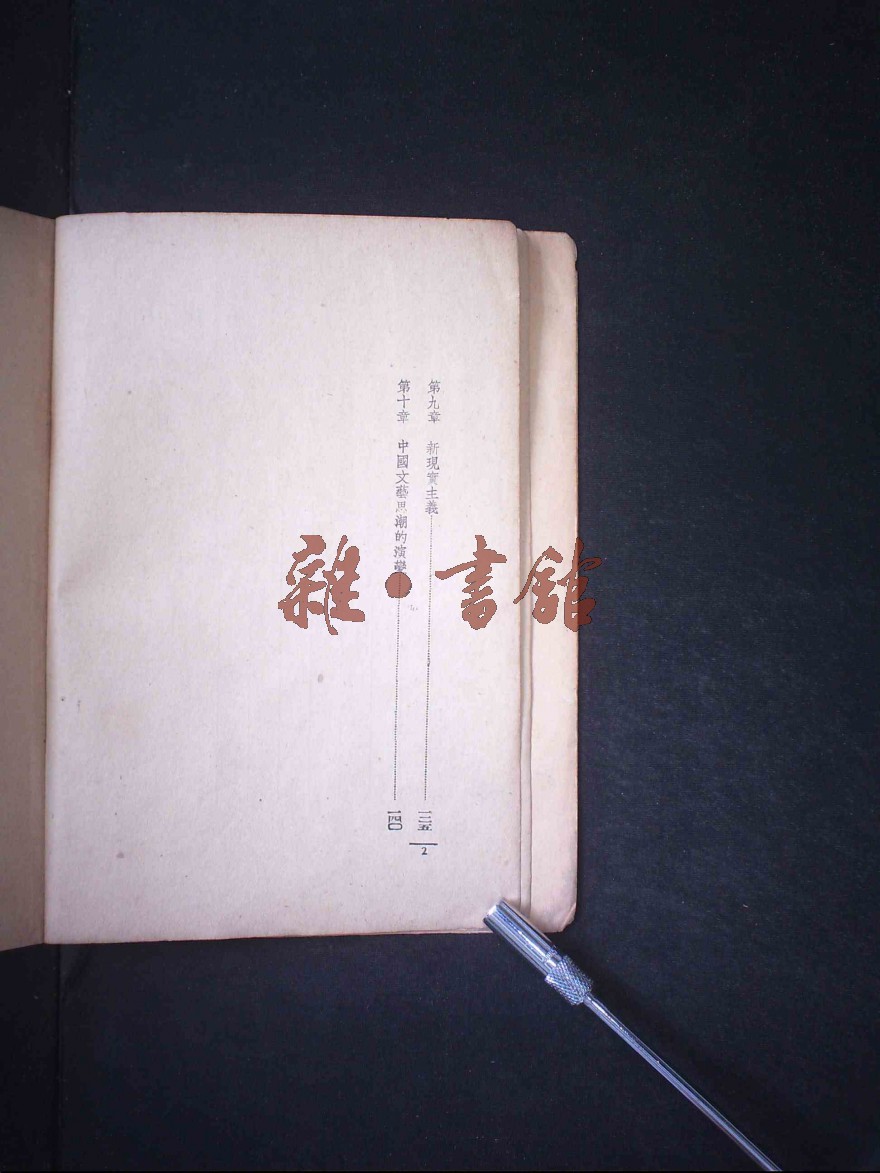 第九章　新現實主義……一三五
第十章　中國文藝思潮的演變……一四〇
2
雜・書館